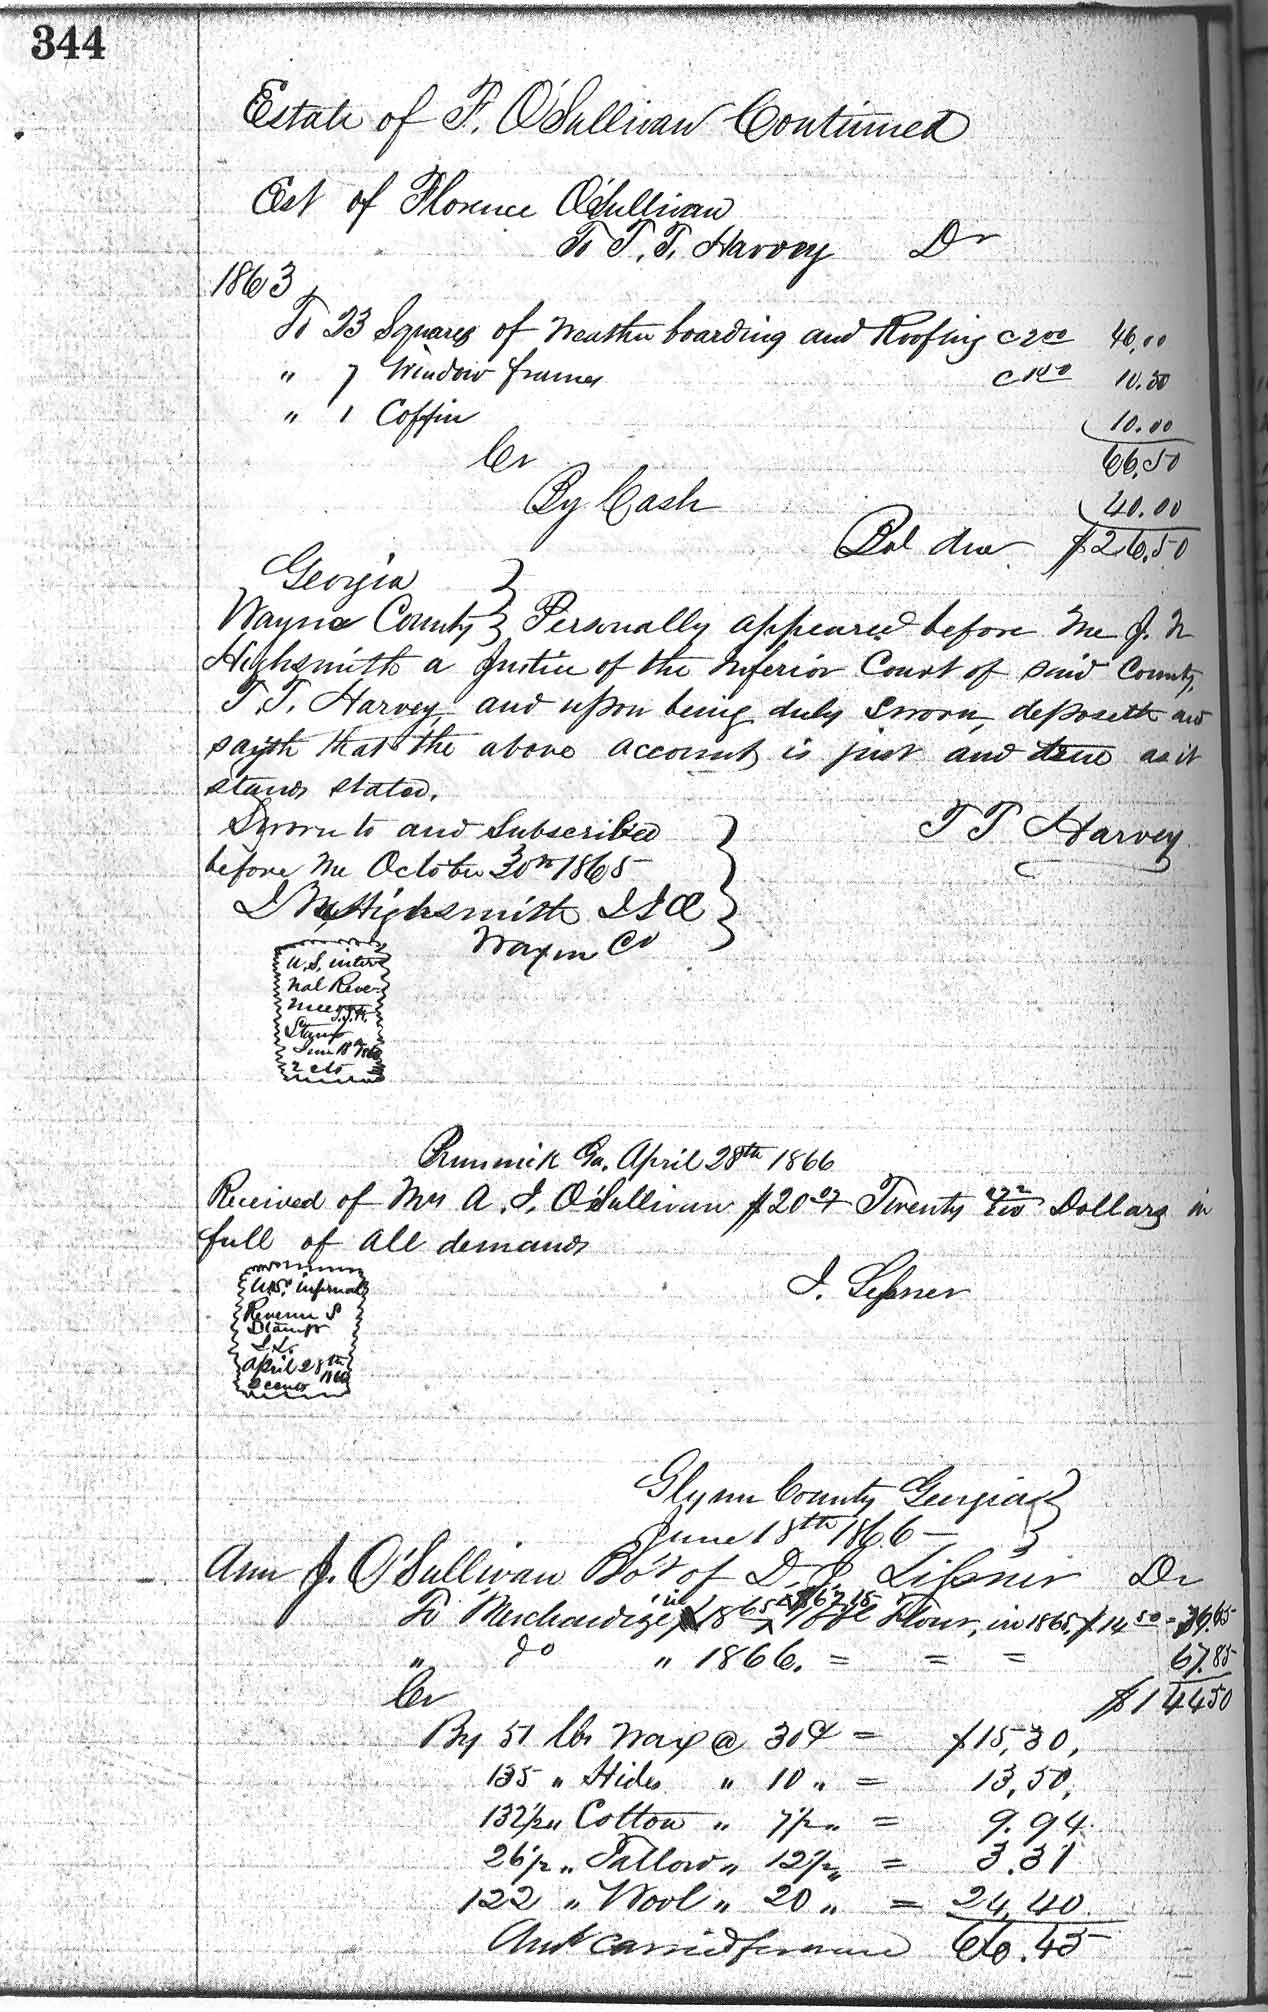 344
Estate of F. O'Sullivan Continued
Est of Florence O'Sullivan
To T. T. Harvey Dr
1863
To 23 Squares of Weather boarding and Roofing @ 2 00 46.00
" 7 Window frames @ 1 50 10.50
" 1 Coffin 10.00
Cr 66.50
By Cash 40.00
Bal due $26.50
Georgia }
Wayne County } Personally appeared before me J. N
Highsmith a Justice of the Inferior Court of said County,
T. T. Harvey, and upon being duly sworn, deposeth and
sayth that the above account is just and true as it
stands stated.
Sworn to and Subscribed } T T Harvey
before me October 30th 1865
J N Highsmith J I C
Wayne Co
U.S. inter
nal Reve-
nue T.T.H.
Stamp
June 18th 1866
2 cts
Brunswick Ga. April 28th 1866
Received of Mrs A. J. O'Sullivan $20 Twenty Dollars in
full of all demands
J. Lissner
U.S. internal
Revenue S
Stamps
April 28th
1866
2 cents
Glynn County Georgia }
June 18th 1866
Ann J. O'Sullivan Bo't of D. J. Lissner Dr
To Merchandize in 1865 $62.15 Flour, in 1865, $14 50 =
" do " 1866. = = = 67.85
Cr $144 50
By 51 lbs Wax @ 30¢ = $15,30,
135 " Hides " 10 " = 13,50,
132½ " Cotton " 7½ " = 9.94
26½ " Tallow " 12½ " = 3.31
122 " Wool " 20 " = 24,40
Amt carried forward 66.45